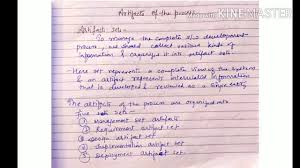 Artifacts of the process
MADE WITH
KINEMASTER
Artifact set:-
To manage the complete s/w development
process, we should collect various kinds of
information & organize it into artifact sets.
Here set represents a complete of the system
& an artifact represents interrelated information
that is developed & reviewed as a single entity
The artifacts of the process are organized into
five sets :-
① Management set artifacts
② Requirement artifact set
③ Design artifact set
④ Implementation artifact set
⑤ Deployment artifact set.